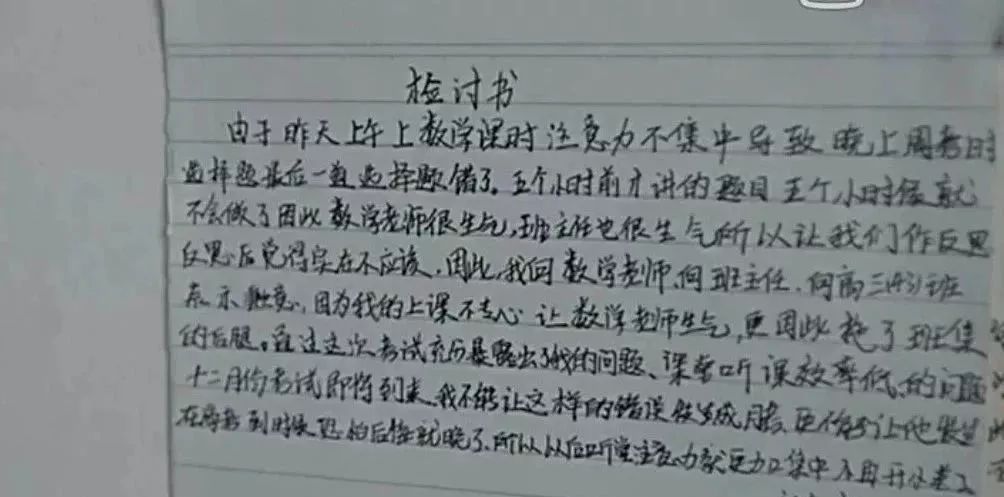 检讨书
由于昨天上午上数学课时注意力不集中导致晚上周考时
选择题最后一道选择题错了。五个小时前才讲的题目五个小时后就
不会做了因此数学老师很生气,班主任也很生气所以让我们作反思
反思后觉得实在不应该,因此,我向数学老师、向班主任、向高三班
表示歉意,因为我的上课不专心让数学老师生气,更因此拖了班集
的后腿。在这次考试充分暴露出了我的问题、课堂听课效率低的问题
十二月份考试即将到来,我不能让这样的错误更不能让他发生
在高考到时候恐怕后悔就晚了,所以以后听课注意力就更加集中不再开小差了